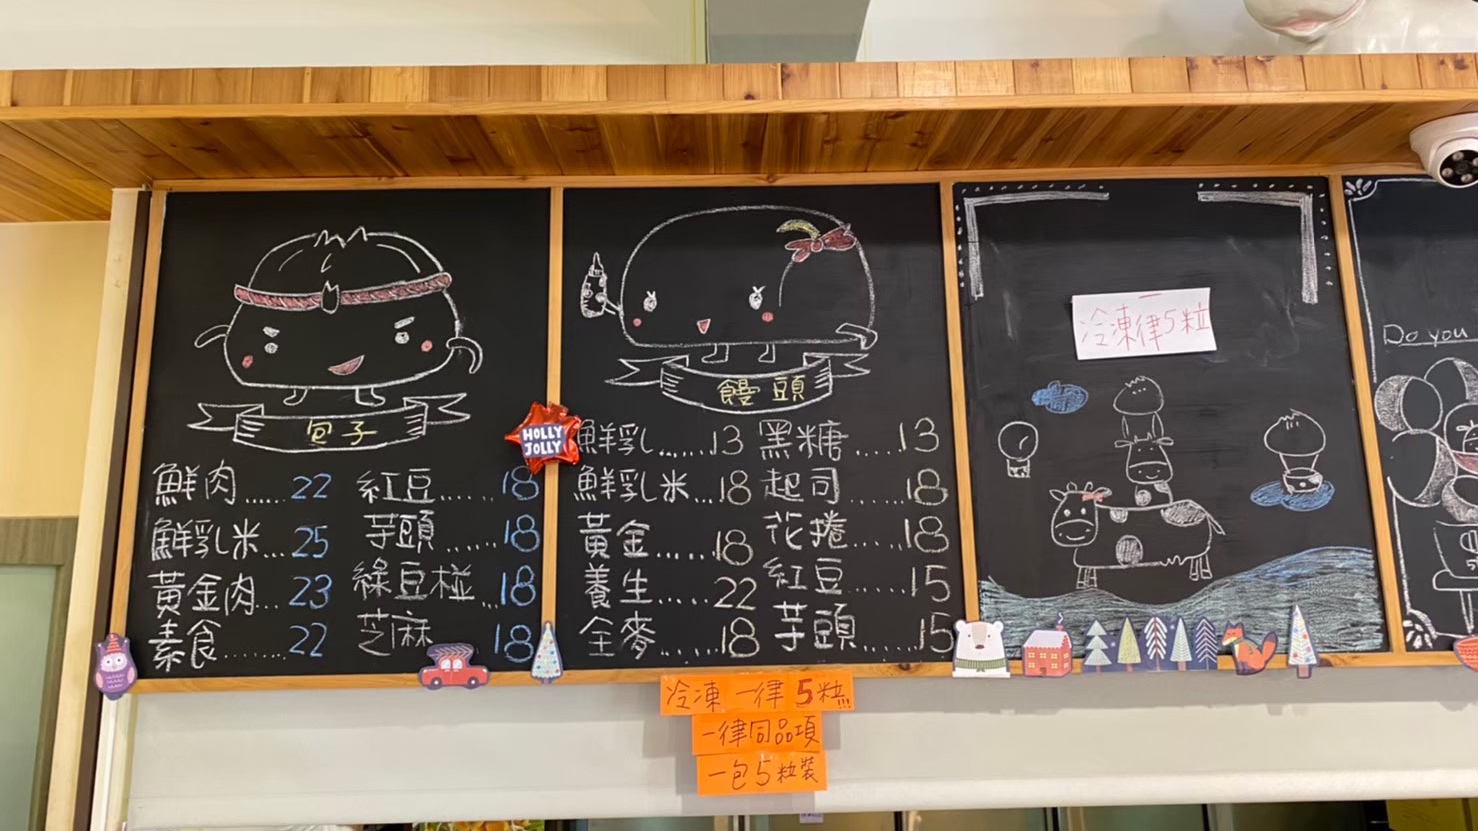 包子
鮮肉......22
鮮乳米...25
黃金肉...23
素食.......22
紅豆.....18
芋頭......18
綠豆椪..18
芝麻.....18
HOLLY
JOLLY
饅頭
鮮乳.....13
鮮乳米...18
黃金.....18
養生.....22
全麥.....18
黑糖....13
起司.....18
花捲.....18
紅豆....15
芋頭....15
冷凍一律5粒
Do you
冷凍 一律5粒!!!
一律同品項
一包5粒裝